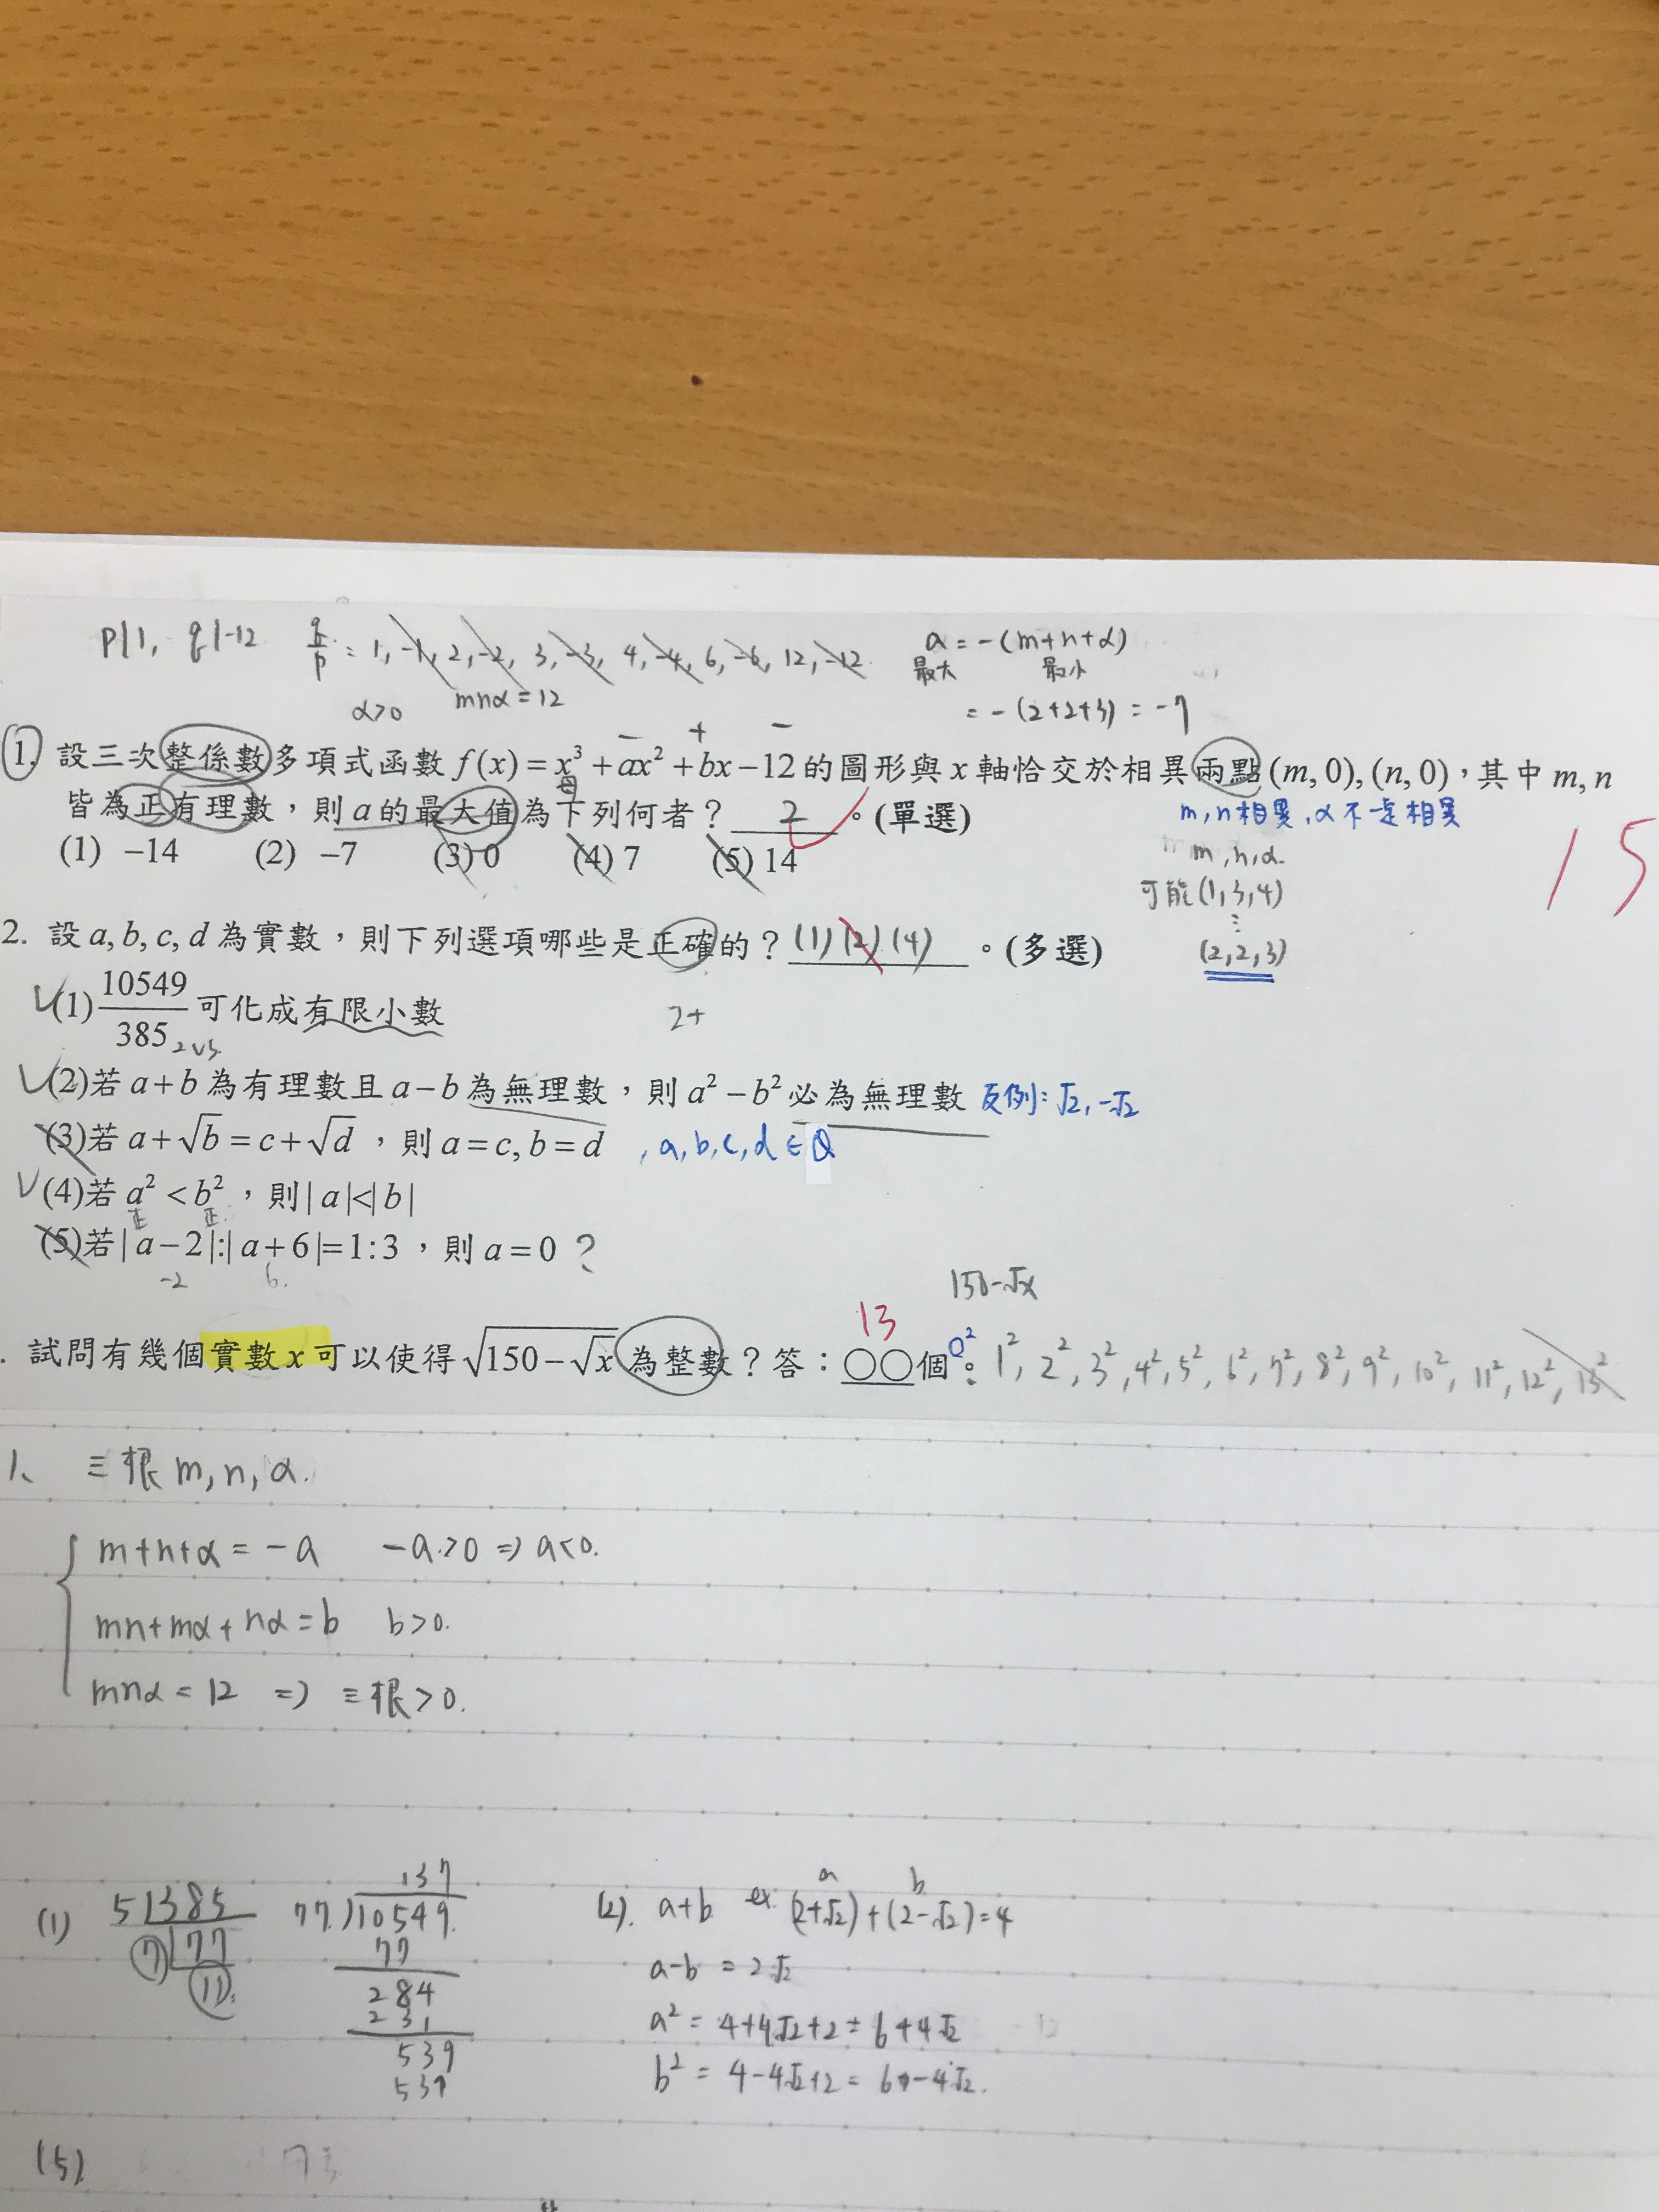 p|1, q|-12 q/p = 1, -1, 2, -2, 3, -3, 4, -4, 6, -6, 12, -12
a = -(m+n+α)
最大 最小
α>0 mnα = 12
= -(2+2+3) = -7
- + -
1. 設三次整係數多項式函數 f(x) = x³ + ax² + bx - 12 的圖形與 x 軸恰交於相異兩點 (m, 0), (n, 0),其中 m, n
皆為正有理數,則 a 的最大值為下列何者? 2 。(單選)
m, n 相異, α 不一定相異
(1) -14 (2) -7 (3) 0 (4) 7 (5) 14
m, n, α.
可能 (1, 3, 4)
⋮
(2, 2, 3)
15
2. 設 a, b, c, d 為實數,則下列選項哪些是正確的? (1)(2)(4) 。(多選)
(1) 10549/385 可化成有限小數
2+
(2)若 a+b 為有理數且 a-b 為無理數,則 a²-b² 必為無理數 反例: √2, -√2
(3)若 a+√b = c+√d ,則 a=c, b=d , a, b, c, d ∈ Q
(4)若 a² < b² ,則 |a|<|b|
正 正
(5)若 |a-2|:|a+6|=1:3 ,則 a=0 ?
-2 6.
150-√x
13
. 試問有幾個實數 x 可以使得 √(150-√x) 為整數?答:○○個。 0² 1², 2², 3², 4², 5², 6², 7², 8², 9², 10², 11², 12², 13²
1、 三根 m, n, α.
m+n+α = -a -a>0 ⇒ a<0.
mn+mα+nα = b b>0.
mnα = 12 ⇒ 三根>0.
(1) 5 385
7 77
11.
137
77 10549.
77
284
231
539
539
(2). a+b ex. (2+√2)+(2-√2)=4
a b
a-b = 2√2
a² = 4+4√2+2 = 6+4√2
b² = 4-4√2+2 = 6-4√2.
(5)